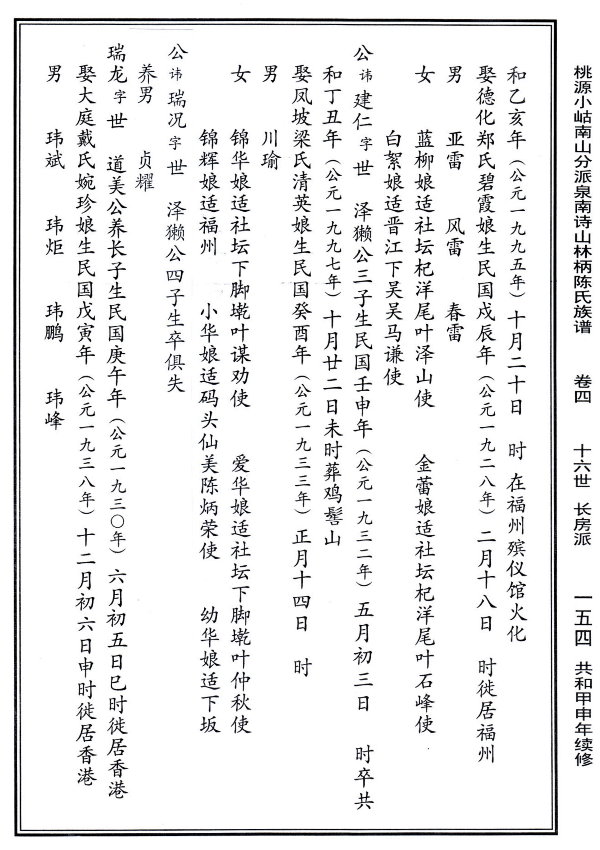 桃源小岵南山分派泉南诗山林柄陈氏族谱 卷四 十六世 长房派 一五四 共和甲申年续修
和乙亥年（公元一九九五年）十月二十日 时 在福州殡仪馆火化
娶德化郑氏碧霞娘生民国戊辰年（公元一九二八年）二月十八日 时徙居福州
男 亚雷 风雷 春雷
女 蓝柳娘适社坛杞洋尾叶泽山使 金蕾娘适社坛杞洋尾叶石峰使
白絮娘适晋江下吴吴马谦使
公讳建仁字世 泽獭公三子生民国壬申年（公元一九三二年）五月初三日 时卒共
和丁丑年（公元一九九七年）十月廿二日未时葬鸡髻山
娶凤坡梁氏清英娘生民国癸酉年（公元一九三三年）正月十四日 时
男 川瑜
女 锦华娘适社坛下脚墘叶谋劝使 爱华娘适社坛下脚墘叶仲秋使
锦辉娘适福州 小华娘适码头仙美陈炳荣使 幼华娘适下坂
公讳瑞况字世 泽獭公四子生卒俱失
养男 贞耀
瑞龙字世 道美公养长子生民国庚午年（公元一九三〇年）六月初五日巳时徙居香港
娶大庭戴氏婉珍娘生民国戊寅年（公元一九三八年）十二月初六日申时徙居香港
男 玮斌 玮炬 玮鹏 玮峰